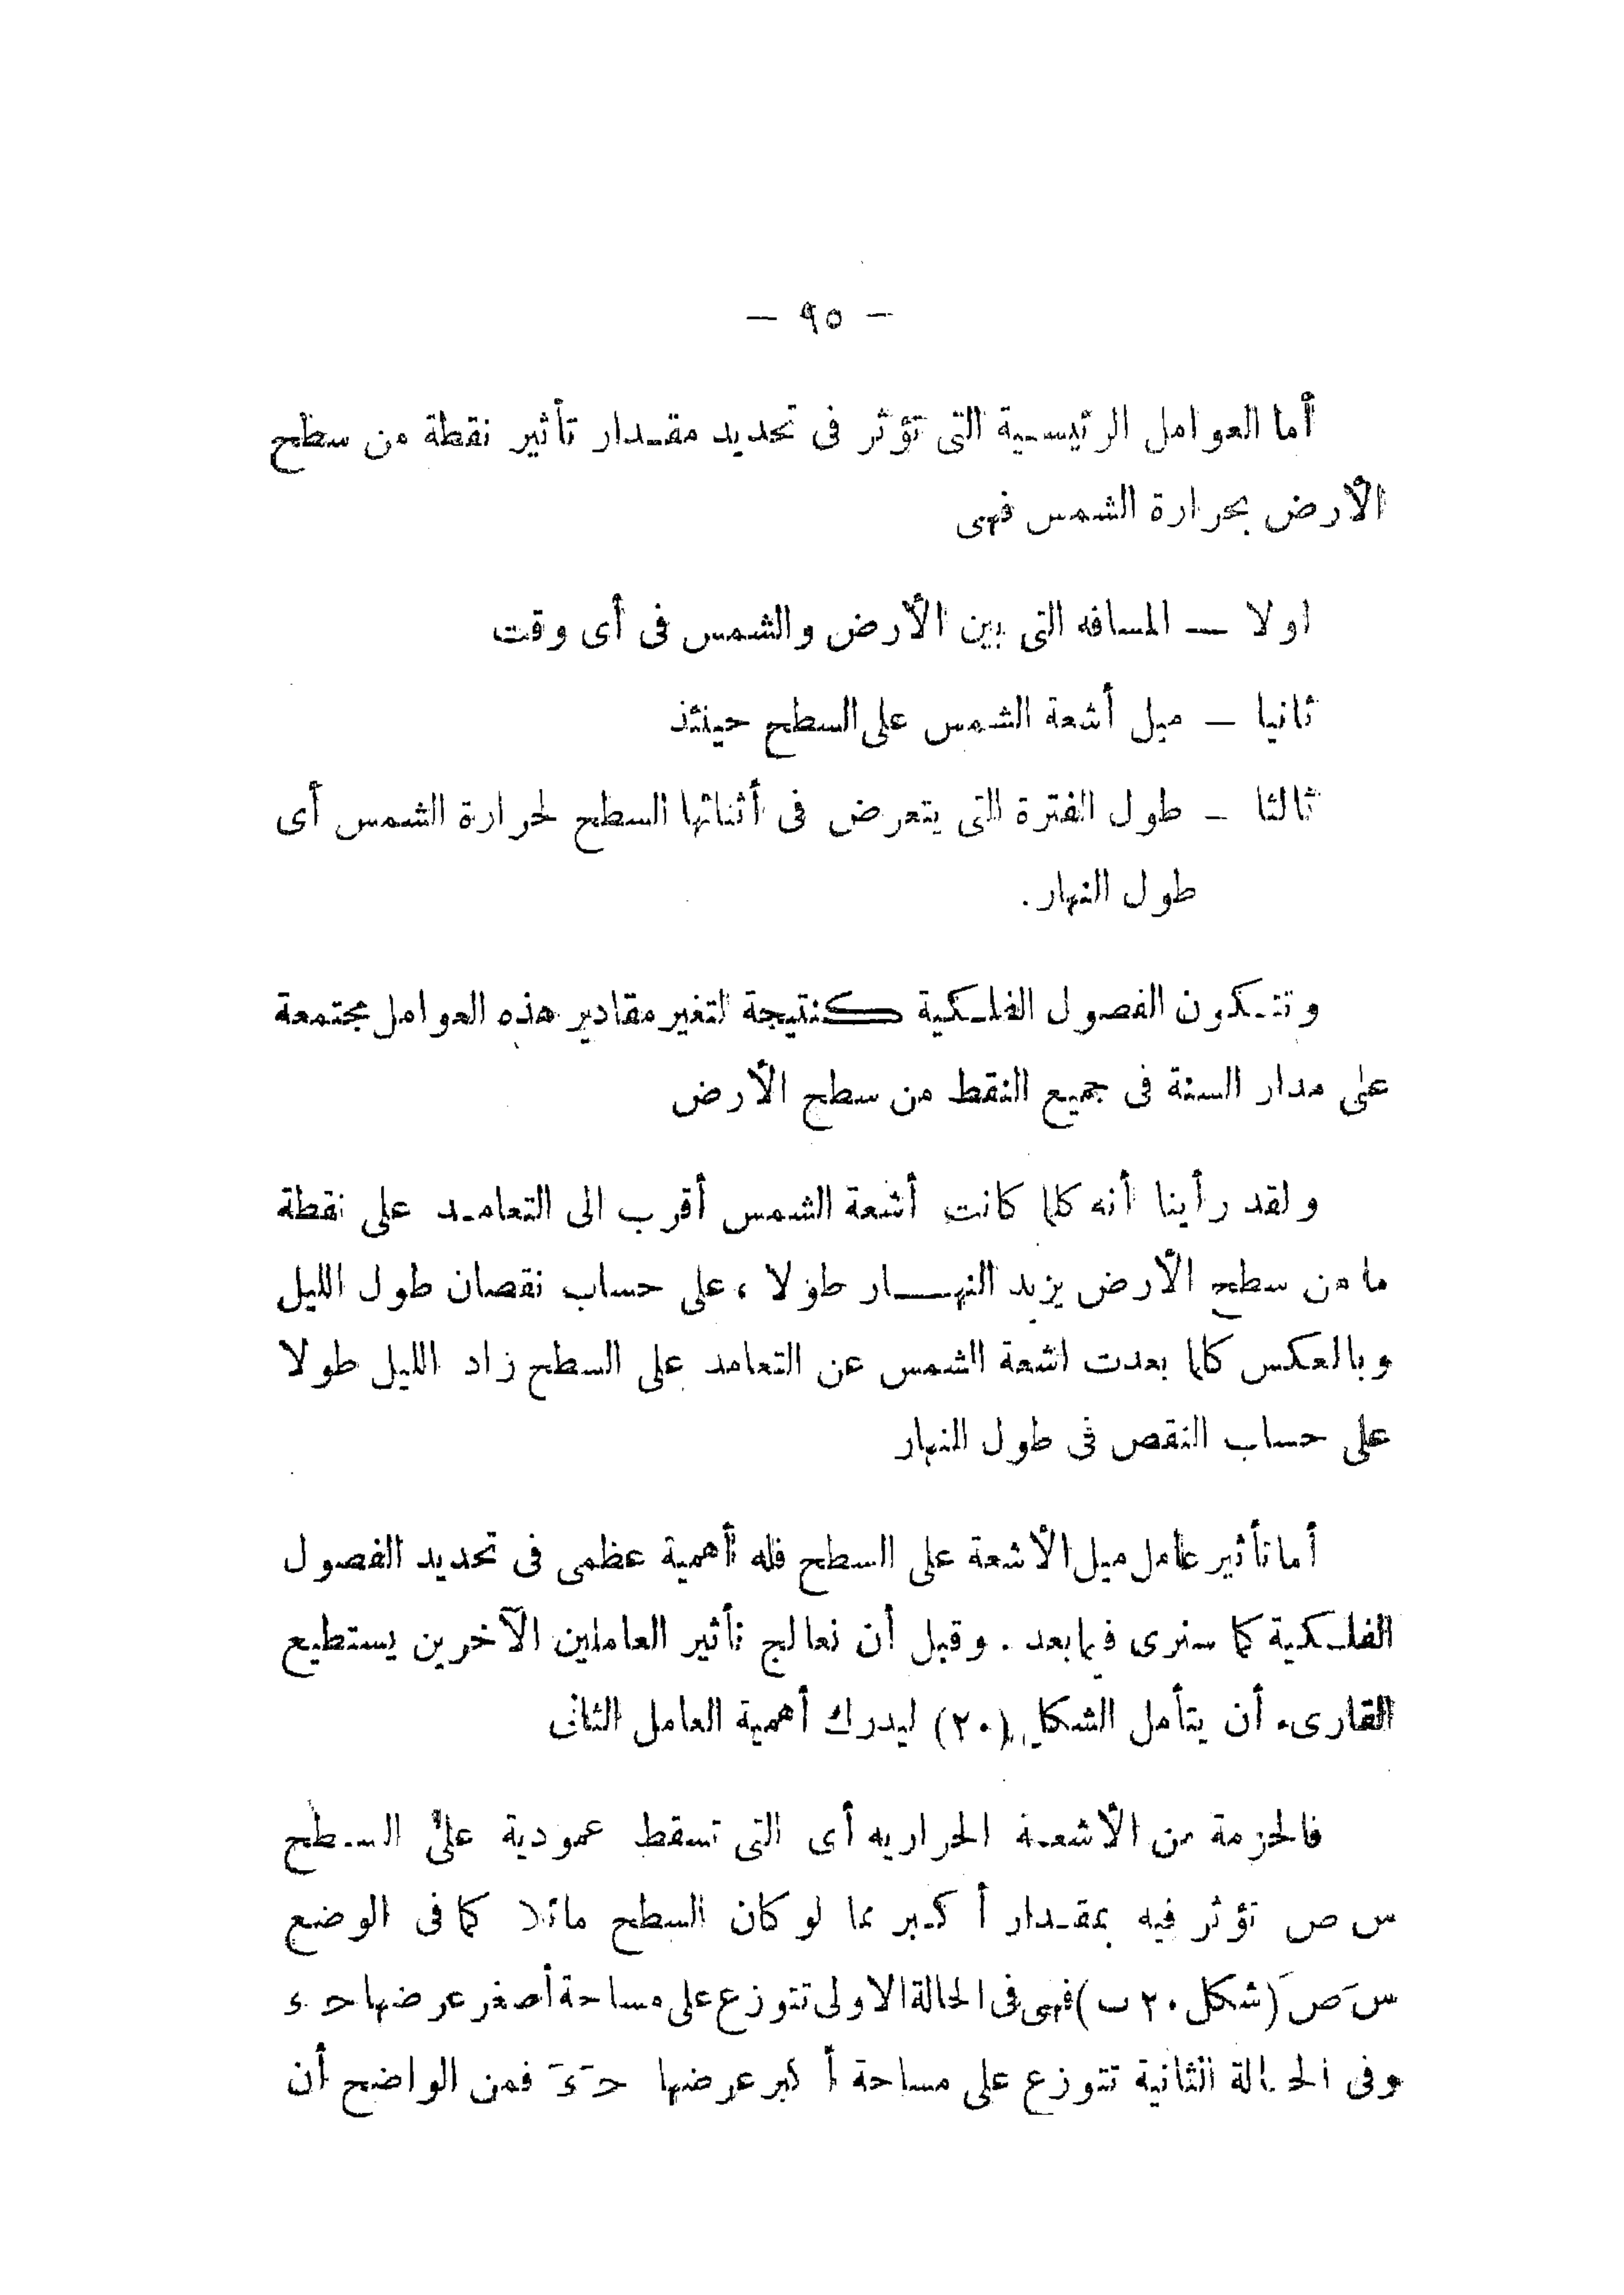 — ٩٥ —
أما العوامل الرئيسية التى تؤثر فى تحديد مقدار تأثير نقطة من سطح
الأرض بحرارة الشمس فهى
اولا — المسافه التى بين الأرض والشمس فى أى وقت
ثانيا — ميل أشعة الشمس على السطح حينئذ
ثالثا — طول الفترة التى يتعرض فى أثنائها السطح لحرارة الشمس أى
طول النهار .
وتتكون الفصول الفلكية كنتيجة لتغير مقادير هذه العوامل مجتمعة
على مدار السنة فى جميع النقط من سطح الأرض
ولقد رأينا أنه كلما كانت أشعة الشمس أقرب الى التعامد على نقطة
ما من سطح الأرض يزيد النهار طولا ، على حساب نقصان طول الليل
وبالعكس كلما بعدت اشعة الشمس عن التعامد على السطح زاد الليل طولا
على حساب النقص فى طول النهار
أما تأثير عامل ميل الأشعة على السطح فله أهمية عظمى فى تحديد الفصول
الفلكية كما سنرى فيما بعد . وقبل أن نعالج تأثير العاملين الآخرين يستطيع
القارىء أن يتأمل الشكل (٢٠) ليدرك أهمية العامل الثانى
فالحزمة من الأشعة الحراريه أى التى تسقط عمودية على السطح
س ص تؤثر فيه بمقدار أكبر مما لو كان السطح مائلا كما فى الوضع
سَ صَ (شكل ٢٠ ب) فهى فى الحالة الاولى تتوزع على مساحة أصغر عرضها حـ ء
وفى الحالة الثانية تتوزع على مساحة أكبر عرضها حـَ ءَ فمن الواضح أن